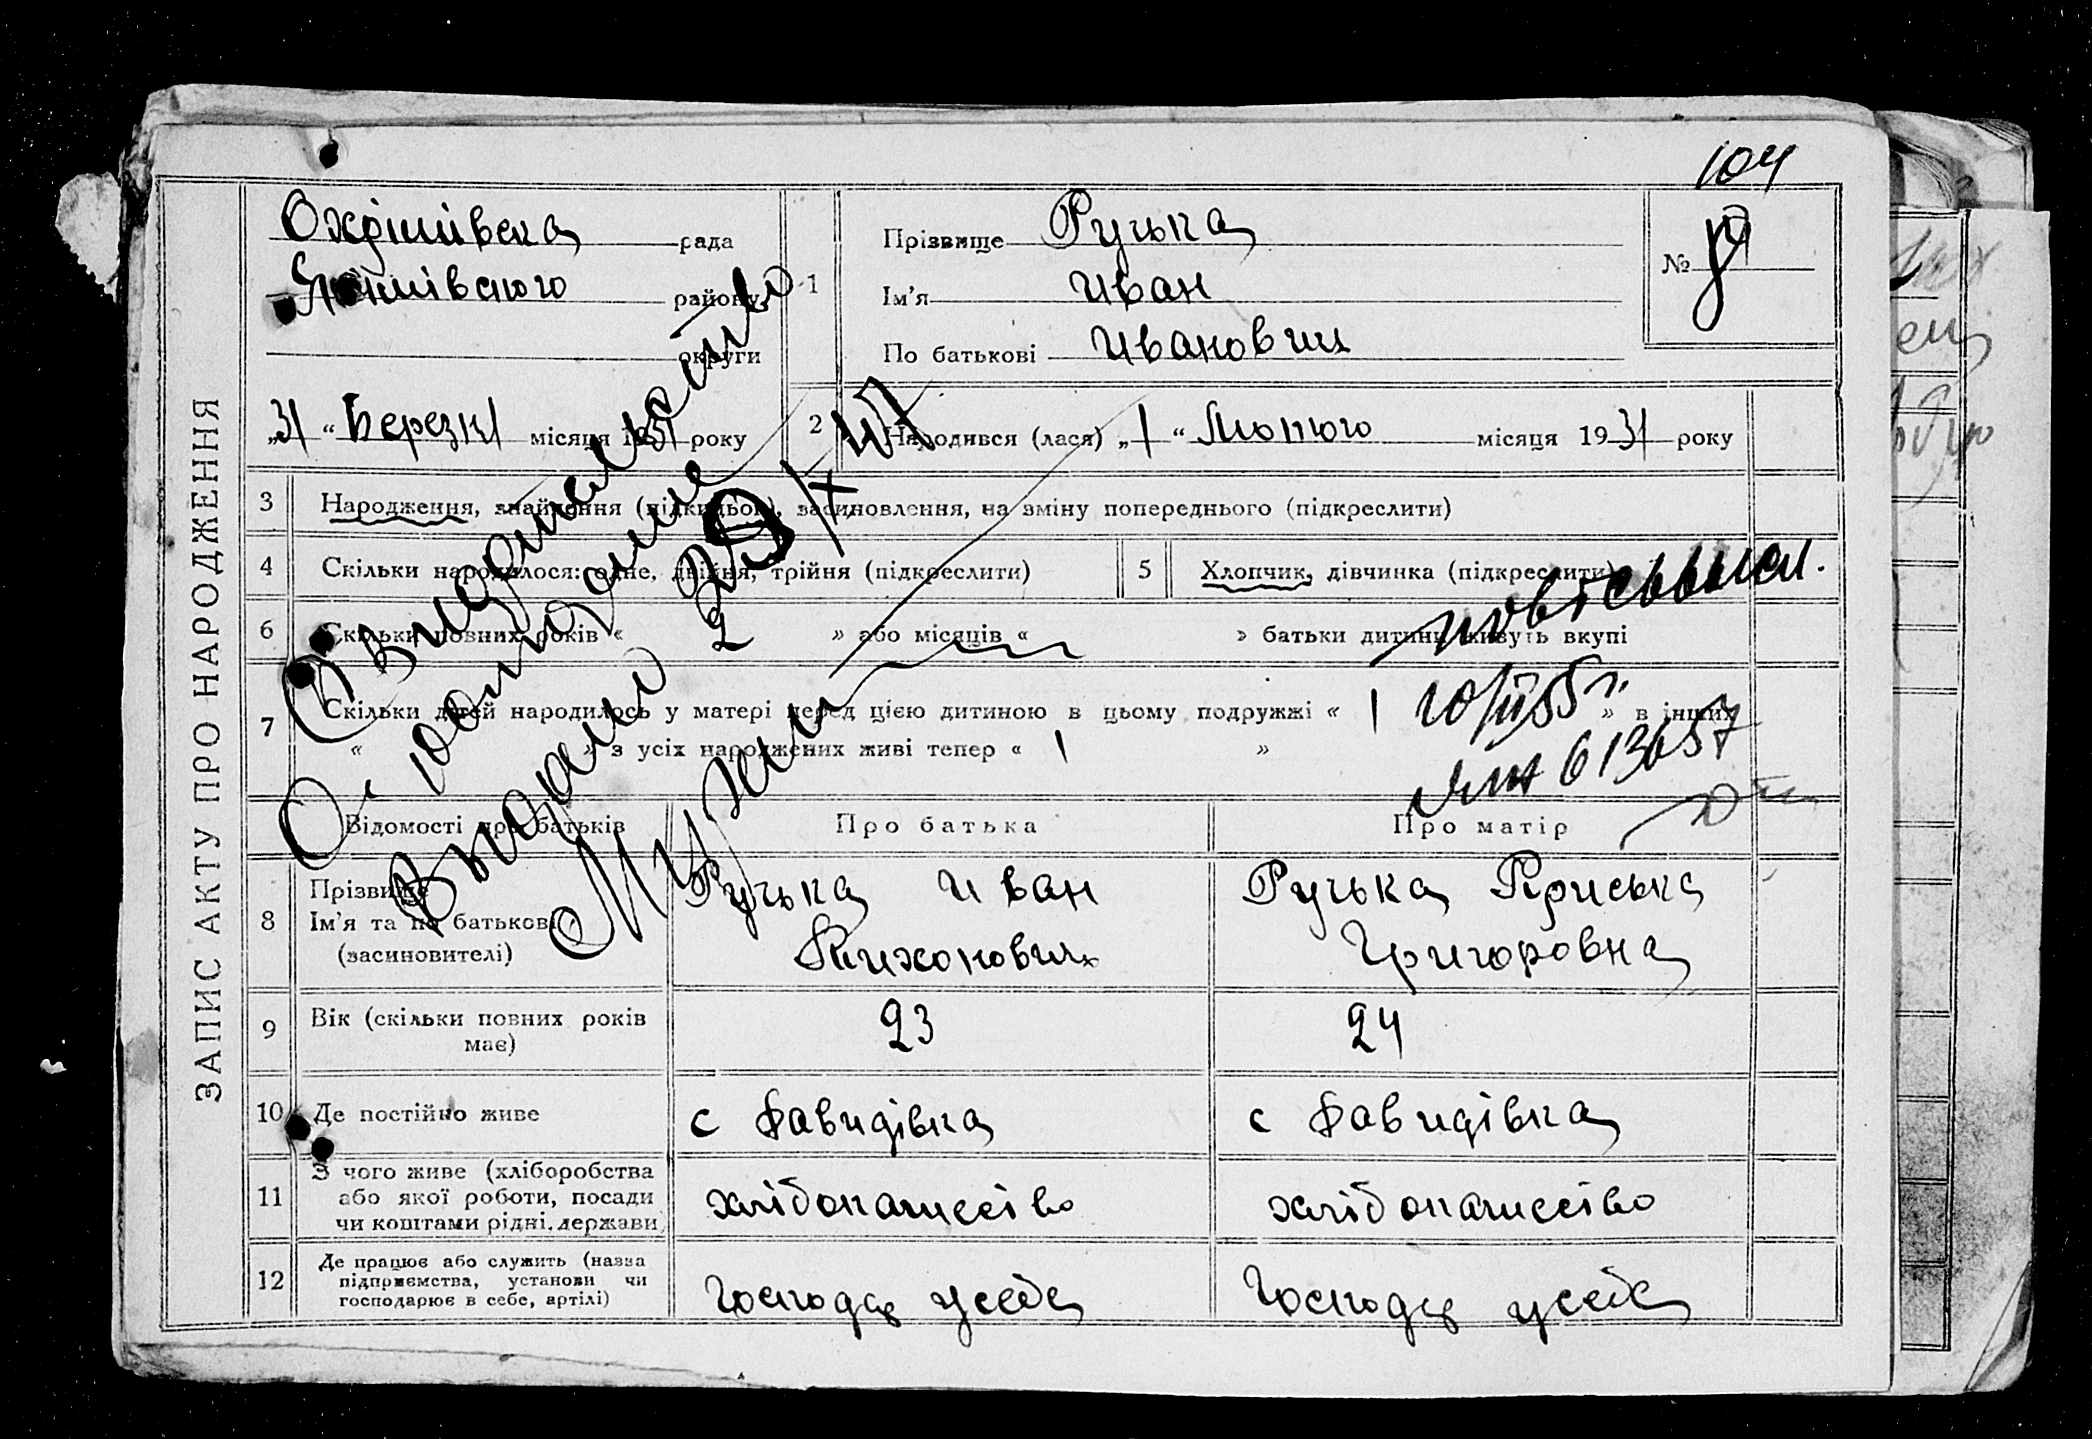 104
ЗАПИС АКТУ ПРО НАРОДЖЕННЯ
Охрімівська рада
Якимівського району
округи
„31“ Березня місяця 1931 року
1
Прізвище Руцька
Ім'я Иван
По батькові Иванович
№
2
Народився (лася) „1“ Лютого місяця 1931 року
3 Народження, знайдення (підкидьок), засиновлення, на зміну попереднього (підкреслити)
4 Скільки народилося: одне, двійня, трійня (підкреслити)
5 Хлопчик, дівчинка (підкреслити)
6 Скільки повних років « » або місяців « » батьки дитини живуть вкупі
7 Скільки дітей народилось у матері перед цією дитиною в цьому подружжі « 1 » в інших
« » з усіх народжених живі тепер « 1 »
Свидетельство
о рождение
Выдано 2
повторный
10/III 55 г.
613657
Відомості про батьків Про батька Про матір
8 Прізвище
Ім'я та по батькові
(засиновителі)
Руцька Иван
Тихонович
Руцька Приська
Григоровна
9 Вік (скільки повних років
має)
23
24
10 Де постійно живе
с Давидівка
с Давидівка
11 З чого живе (хліборобства
або якої роботи, посади
чи коштами рідні, держави)
хлібопашество
хлібопашество
12 Де працює або служить (назва
підприємства, установи чи
господарює в себе, артілі)
Господар у себе
Господар у себе